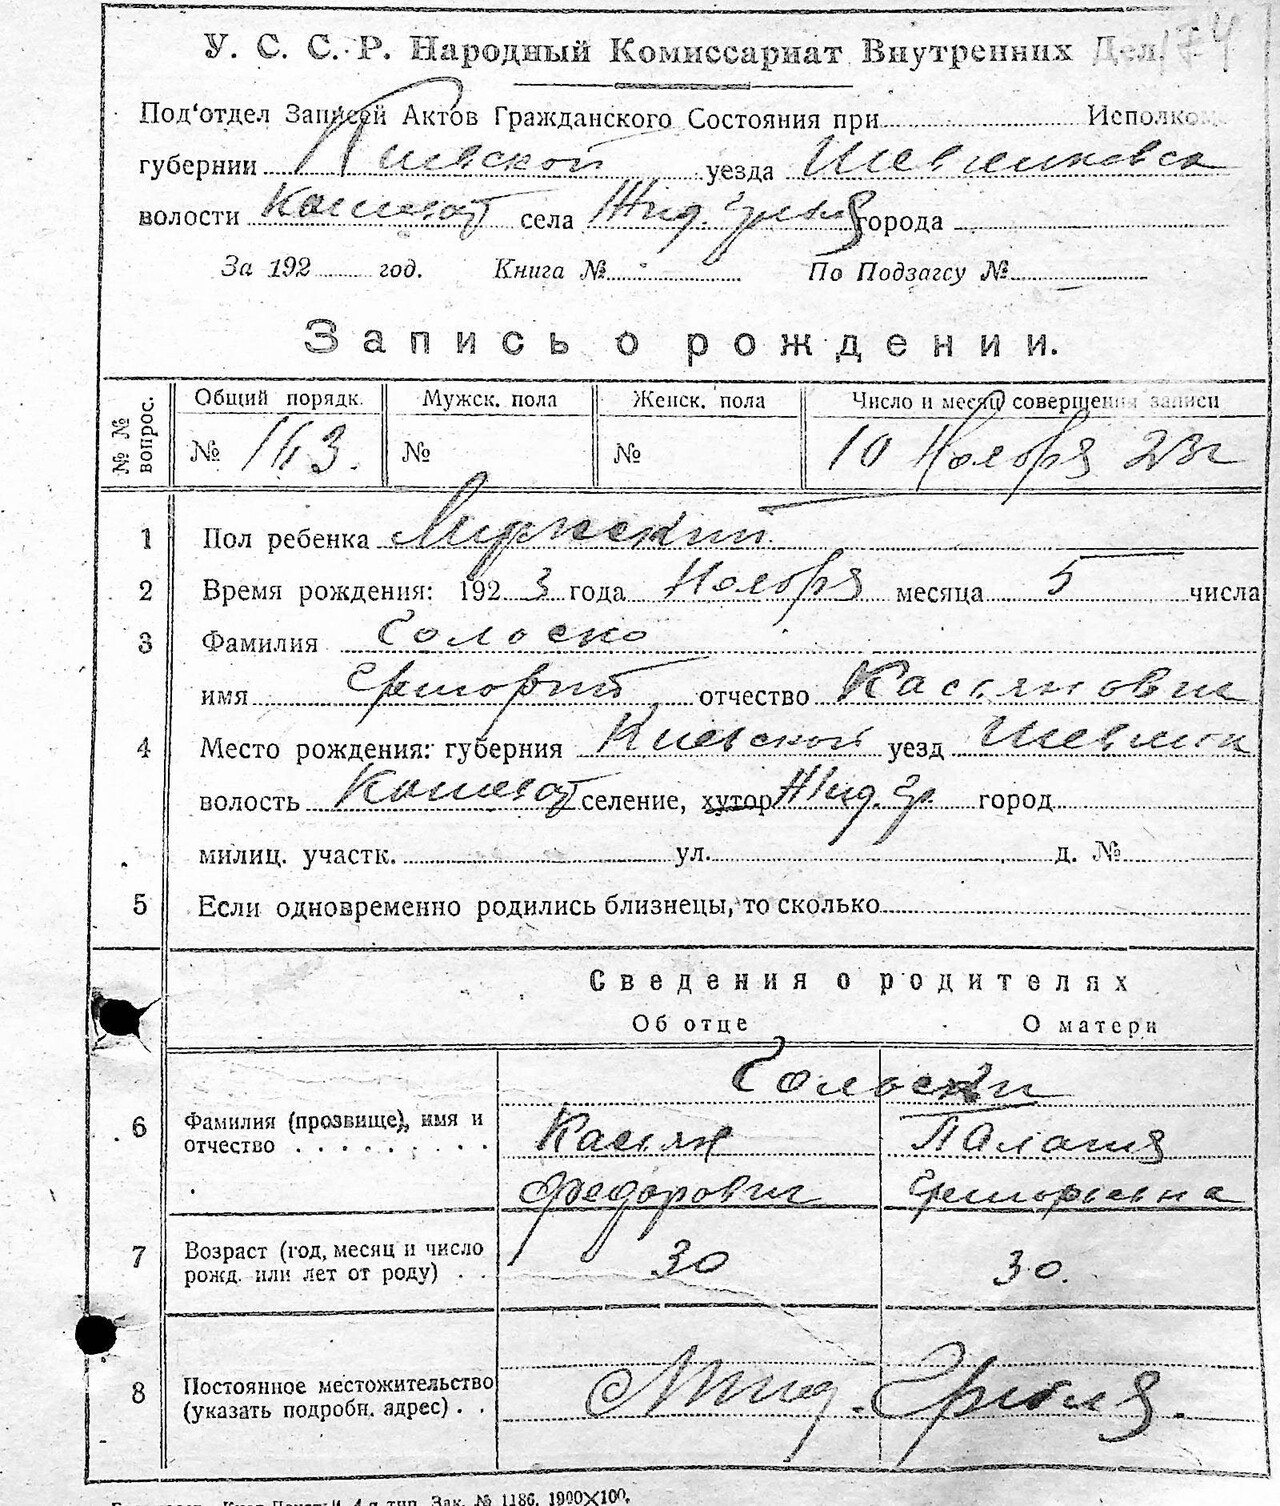 У. С. С. Р. Народный Комиссариат Внутренних Дел. 174
Под‘отдел Записей Актов Гражданского Состояния при Исполком
губернии Киевской уезда Шевченковск
волости Кошеват села Жид. Гребля города
За 192 год. Книга № По Подзагсу №
Запись о рождении.
№ № вопрос. Общий порядк. Мужск. пола Женск. пола Число и месяц совершения записи
№ 143. № № 10 Ноября 23 г
1 Пол ребенка Мужской
2 Время рождения: 192 3 года Ноября месяца 5 числа
3 Фамилия Солоско
имя Григорий отчество Касьянович
4 Место рождения: губерния Киевской уезд Шевченк
волость Кошеват селение, хутор Жид. Гр. город
милиц. участк. ул. д. №
5 Если одновременно родились близнецы, то сколько
Сведения о родителях
Об отце О матери
Солоски
6 Фамилия (прозвище), имя и отчество Касьян Палагия
Федорович Григорьевна
7 Возраст (год, месяц и число рожд. или лет от роду) 30 30.
8 Постоянное местожительство (указать подробн. адрес) с Жид. Гребля.
4-я тип. Зак. № 1186. 1900×100.